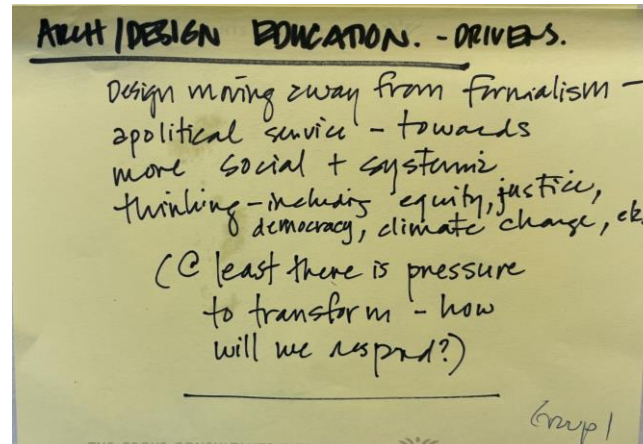 ARCH/DESIGN EDUCATION. - DRIVERS.
Design moving away from formalism -
apolitical service - towards
more social + systemic
thinking - including equity, justice,
democracy, climate change, etc.
(@ least there is pressure
to transform - how
will we respond?)
Group 1